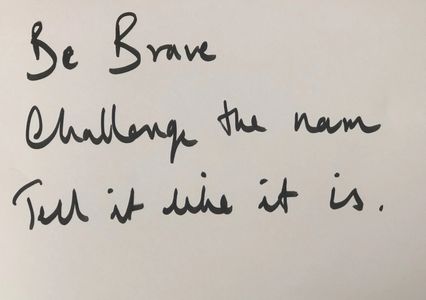 Be Brave
Challenge the norm
Tell it like it is.